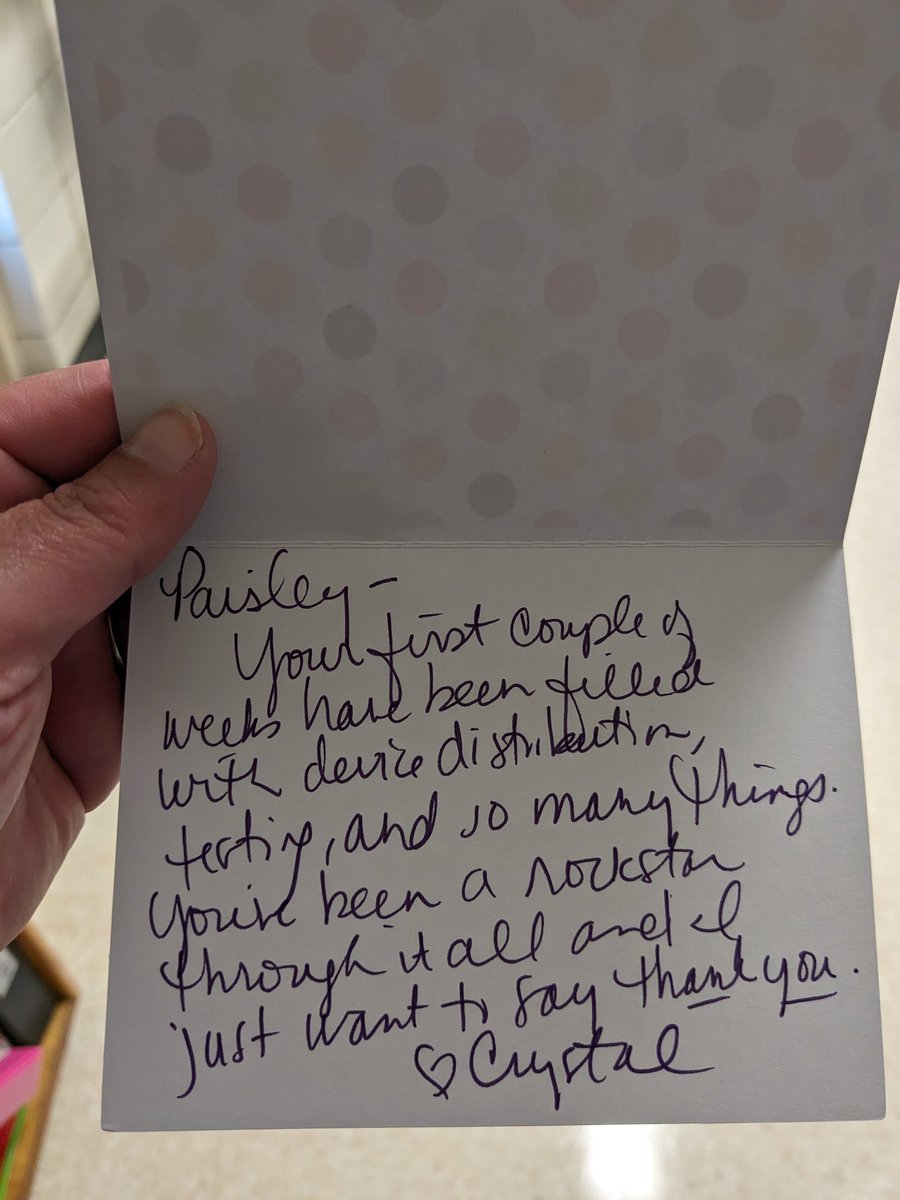 Paisley-
Your first couple of
weeks have been filled
with device distribution,
testing, and so many things.
You've been a rockstar
through it all and I
just want to say thank you.
♡ Crystal